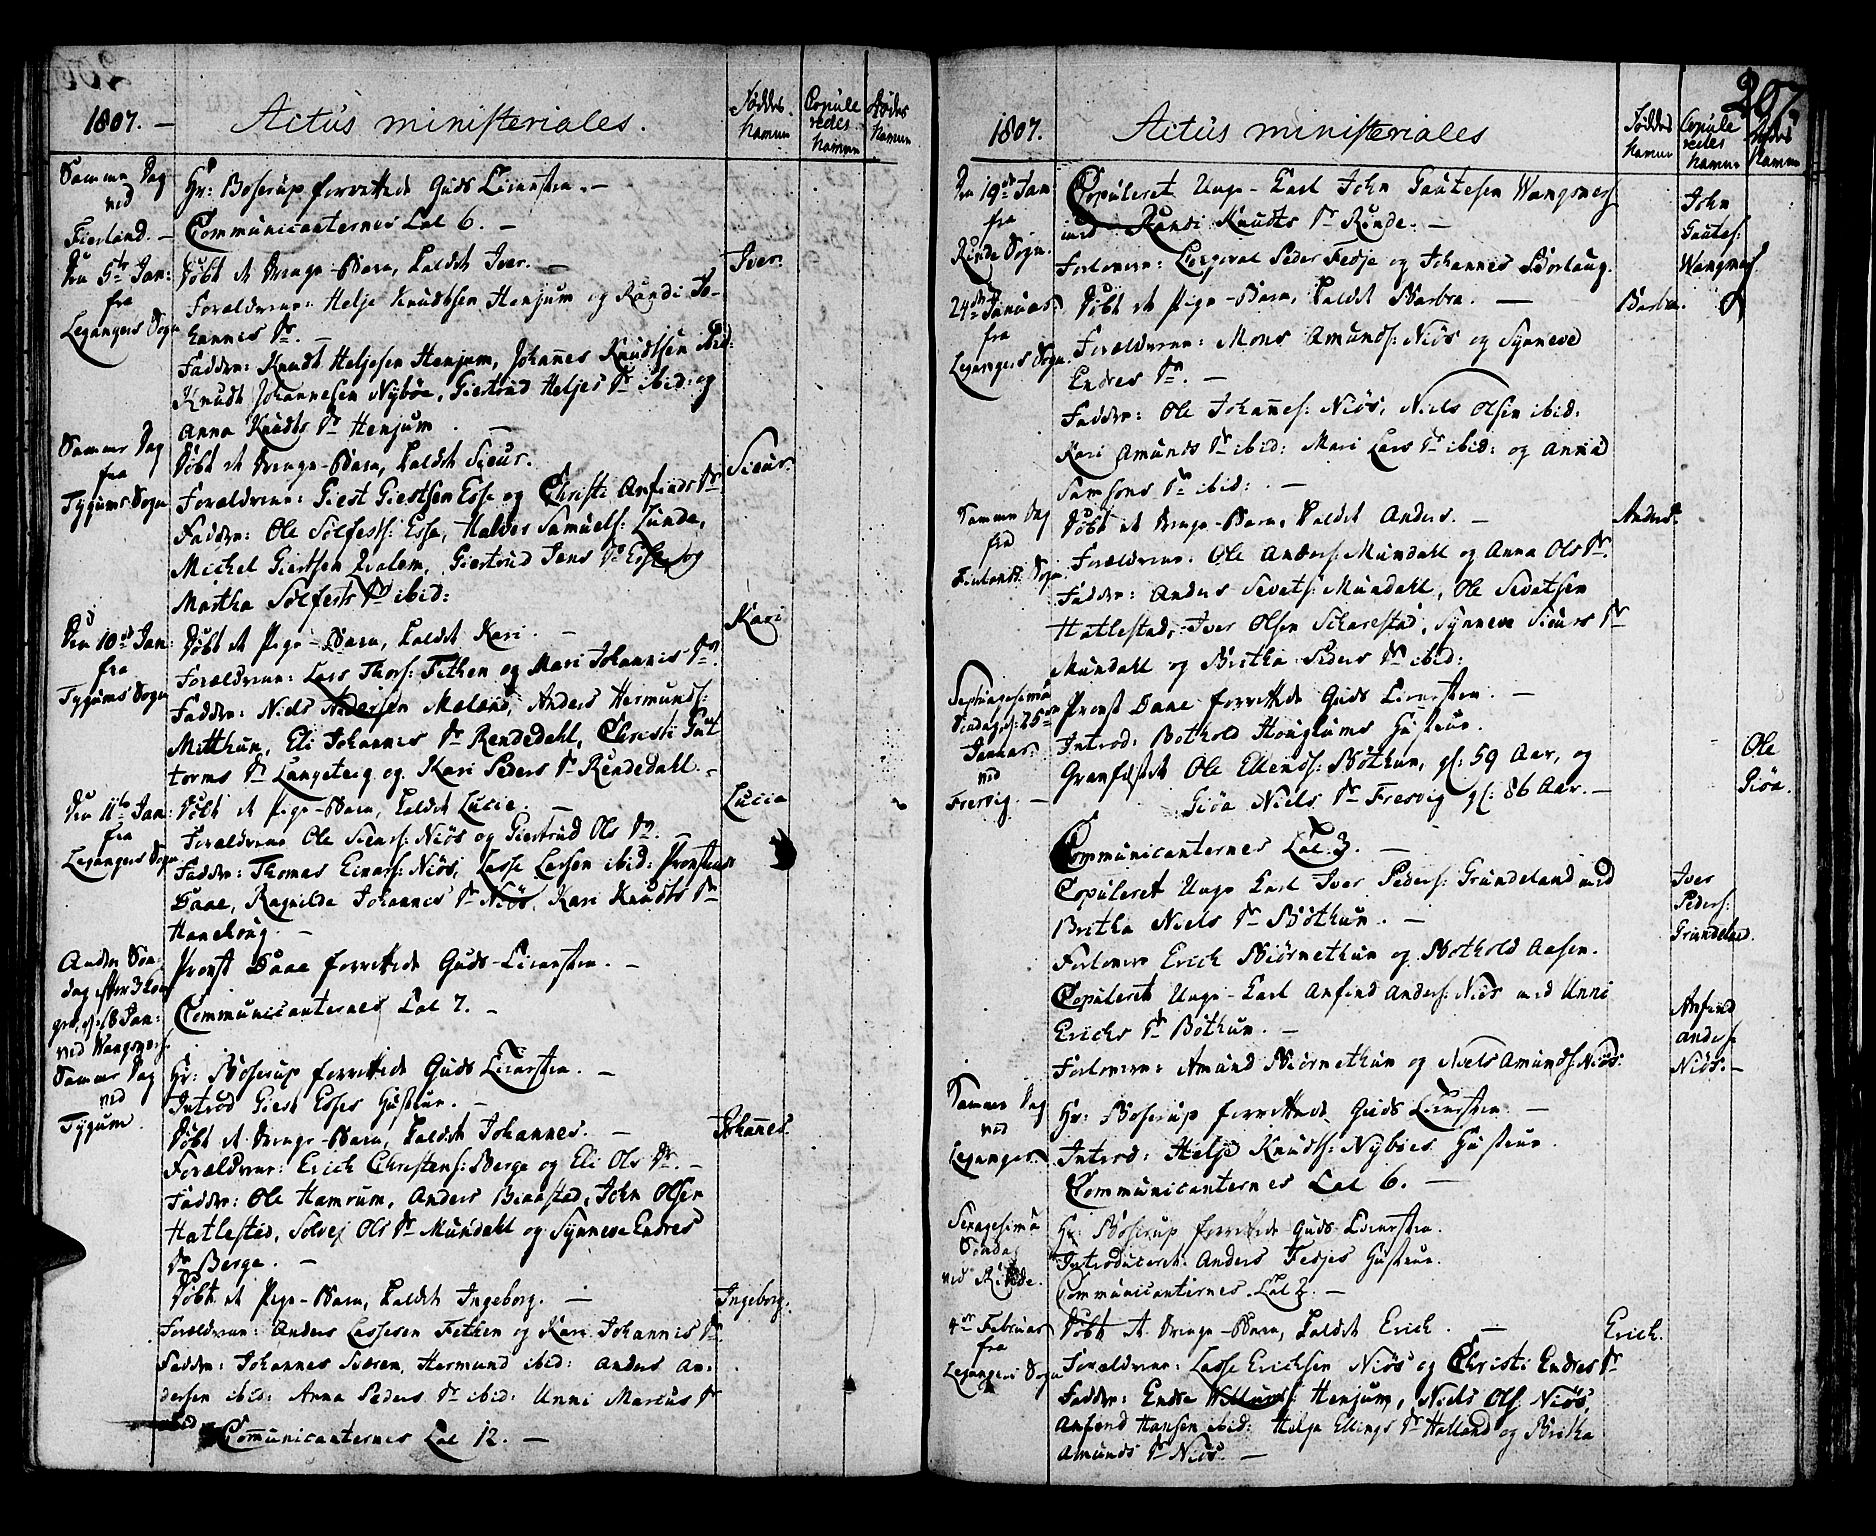 1807. — Actus ministeriales. Fødde Namne Copule redes Namne Døde Namne
Samme Dag ved Fierland. —
Hr: Boserup forrettede Guds Tienesten. —
Communicanternes Tal 6. —
Den 5te Jan: fra Legangers Sogn
Døbt et Drenge-Barn, kaldet Iver. —
Iver.
Forældrene: Helje Knudtsen Henjum og Randi Jo-
hannes Dr. —
Faddere: Knudt Heljesen Henjum, Johannes Knudtsen ibid:
Knudt Johannesen Nybøe, Giertrud Heljes Dr ibid: og
Anna Knudts Dr Henjum. —
Samme Dag fra Tygums Sogn
Døbt et Drenge-Barn, kaldet Siur.
Siur.
Forældrene: Giest Giestsen Esse og Christi Anfinds Dr
Faddere: Ole Solfests: Esse, Haldor Samuels: Lunde,
Michel Giestsen Qvalem, Giertrud Jens Dr Esse og
Martha Solfests Dr ibid:
Den 10de Jan: fra Tygums Sogn
Døbt et Pige-Barn, kaldet Kari. —
Kari
Forældrene: Lars Thors: Fethen og Mari Johannis Dr.
Faddere: Niels Andersen Meland, Anders Hermunds:
Mitthun, Eli Johannes Dr Rendedahl, Christi Gut
torms Dr Langeteig og Kari Peders Dr Rendedahl. —
Den 11te Jan: fra Legangers Sogn
Døbt et Pige-Barn, kaldet Lucie. —
Lucia
Forældrene Ole Siurs: Niøs og Giertrud Ols Dr. —
Faddere: Thomas Einars: Niøs, Lasse Larsen ibid: Provstinde
Daae, Ragnilda Johannes Dr Niøs, Kari Knudts Dr
Hanehoug. —
Anden Søn-
dag efter 3 Kon
ger, d: 18 Jan:
ved Wangsnes.
Provst Daae forrettede Guds-Tienesten. —
Communicanternes Tal 7. —
Samme Dag ved Tygum.
Hr: Boserup forrettede Guds Tienesten. —
Introd Giest Esses Hustrue. —
Døbt et Drenge-Barn, kaldet Johannes. —
Johannes.
Forældrene: Erich Christens: Berge og Eli Ols Dr. —
Faddere: Ole Hamrum, Anders Benastad, John Olsen
Hatlestad, Solvej Ols Dr Mundahl og Synneve Endres
Dr Berge. —
Døbt et Pige-Barn, kaldet Ingeborg. —
Ingeborg.
Forældrene: Anders Lassesen Fethen og Kari Johannis Dr
Faddere: Johannes Siøren, Hermund ibid: Anders An-
dersen ibid: Anna Peders Dr ibid: Unni Marcus Dr
ibid
Communicanternes Tal 12. —
207.
1807. Actus ministeriales Fødde Namne Copule redes Namne Døde Namne
Den 19de Jan: fra Rinde Sogn
Copuleret Unge-Karl John Gautesen Wangsnes
med Randi Knudts Dr Rinde. —
John
Gautes:
Wangsnes
Forlovere: Corporal Peder Fedje og Johannes Borlaug.
24de Januar. fra Legangers Sogn.
Døbt et Pige-Barn, kaldet Barbra. —
Barbra.
Forældrene: Mons Amunds: Niøs og Synneve
Endres Dr. —
Faddere: Ole Johannes: Niøs, Niels Olsen ibid:
Kari Amunds Dr ibid: Mari Lars Dr ibid: og Anna
Samsons Dr ibid: —
Samme Dag fra Fierlands Sogn.
Døbt et Drenge-Barn, kaldet Anders. —
Anders.
Forældrene: Ole Anders: Mundahl og Anna Ols Dr.
Faddere: Anders Sevats: Mundahl, Ole Sevatsen
Hatlestad, Iver Olsen Scharestad, Synneve Siurs Dr
Mundahl og Britha Peders Dr ibid:
Septuagesima Søndag d: 25de Januar. ved Fresvig. —
Provst Daae forrettede Guds Tienesten. —
Introd: Bothold Houglums Hustrue.
Gravfæstet Ole Ellends: Bøthun, gl: 59 Aar, og
Giøa Niels Dr Fresvig gl: 86 Aar. —
Ole
Giøa.
Communicanternes Tal 3. —
Copuleret Unge Karl Iver Peders: Grundeland med
Britha Niels Dr Bøthun. —
Iver
Peders:
Grundeland.
Forlovere Erich Biørnethun og Bothold Aasen.
Copuleret Unge-Karl Anfind Anders: Niøs med Unni
Erichs Dr Bøthun. —
Anfind
Anders:
Niøs. —
Forlovere: Amund Biørnethun og Niels Amunds: Niøs:
Samme Dag ved Leganger.
Hr: Boserup forrettede Guds Tienesten. —
Introd: Helje Knudts: Nybøes Hustrue.
Communicanternes Tal 6. —
Sexagesima Søndag ved Rinde.
Hr: Boserup forrettede Guds-Tienesten.
Introduceret: Anders Fedjes Hustrue.
Communicanternes Tal 2. —
4de Februar fra Legangers Sogn
Døbt et Drenge-Barn, kaldet Erich. —
Erich.
Forældrene: Lasse Erichsen Niøs og Christi Endres Dr
Faddere: Endre Henjum, Niels Ols: Niøs,
Anfind Hansen ibid: Helga Ellings Dr Hatland og Britha
Amunds Dr Niøs. —